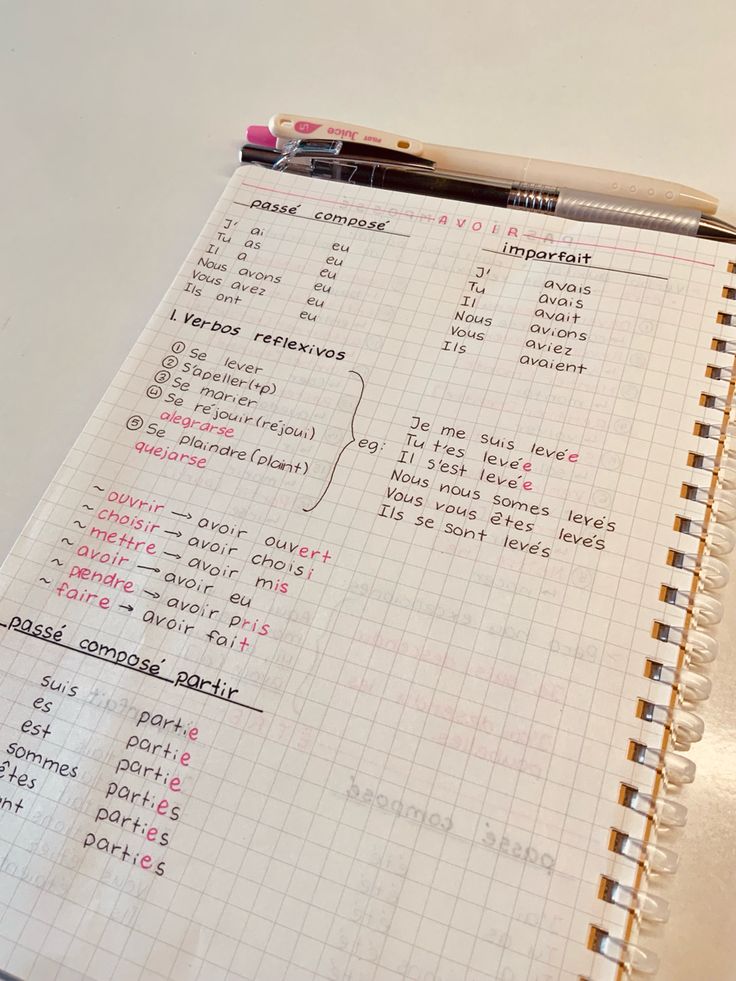 Juice
PILOT
AVOIR
passé composé
J' ai eu
Tu as eu
Il a eu
Nous avons eu
Vous avez eu
Ils ont eu
imparfait
J' avais
Tu avais
Il avait
Nous avions
Vous aviez
Ils avaient
1. Verbos reflexivos
① Se lever
② S'apeller (+p)
③ Se marier
④ Se réjouir (réjoui)
alegrarse
⑤ Se plaindre (plaint)
quejarse
eg:
Je me suis levée
Tu t'es levée
Il s'est levée
Nous nous somes levés
Vous vous êtes levés
Ils se sont levés
~ ouvrir → avoir ouvert
~ choisir → avoir choisi
~ mettre → avoir mis
~ avoir → avoir eu
~ prendre → avoir pris
~ faire → avoir fait
passé composé partir
suis partie
es partie
est partie
sommes parties
êtes parties
nt parties